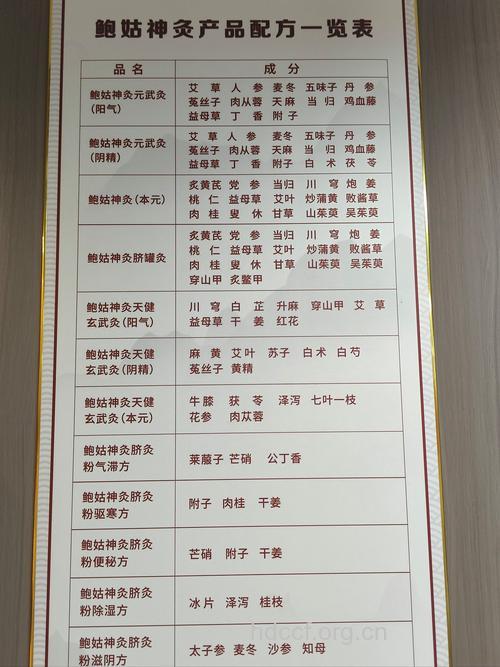 鲍姑神灸产品配方一览表
品名 成分
鲍姑神灸元武灸 艾草 人参 麦冬 五味子 丹参
(阳气) 菟丝子 肉从蓉 天麻 当归 鸡血藤
益母草 丁香 附子
鲍姑神灸元武灸 艾草 人参 麦冬 五味子 丹参
(阴精) 菟丝子 肉从蓉 天麻 当归 鸡血藤
益母草 丁香 附子 白术 茯苓
鲍姑神灸(本元) 炙黄芪 党参 当归 川穹 炮姜
桃仁 益母草 艾叶 炒蒲黄 败酱草
肉桂 叟休 甘草 山茱萸 吴茱萸
鲍姑神灸脐罐灸 炙黄芪 党参 当归 川穹 炮姜
桃仁 益母草 艾叶 炒蒲黄 败酱草
肉桂 叟休 甘草 山茱萸 吴茱萸
穿山甲 炙鳖甲
鲍姑神灸天健 川穹 白芷 升麻 穿山甲 艾草
玄武灸(阳气) 益母草 干姜 红花
鲍姑神灸天健 麻黄 艾叶 苏子 白术 白芍
玄武灸(阴精) 菟丝子 黄精
鲍姑神灸天健 牛膝 获苓 泽泻 七叶一枝
玄武灸(本元) 花参 肉苁蓉
鲍姑神灸脐灸 莱菔子 芒硝 公丁香
粉气滞方
鲍姑神灸脐灸 附子 肉桂 干姜
粉驱寒方
鲍姑神灸脐灸 芒硝 附子 干姜
粉便秘方
鲍姑神灸脐灸 冰片 泽泻 桂枝
粉除湿方
鲍姑神灸脐灸 太子参 麦冬 沙参 知母
粉滋阴方
hdccf.org.cn